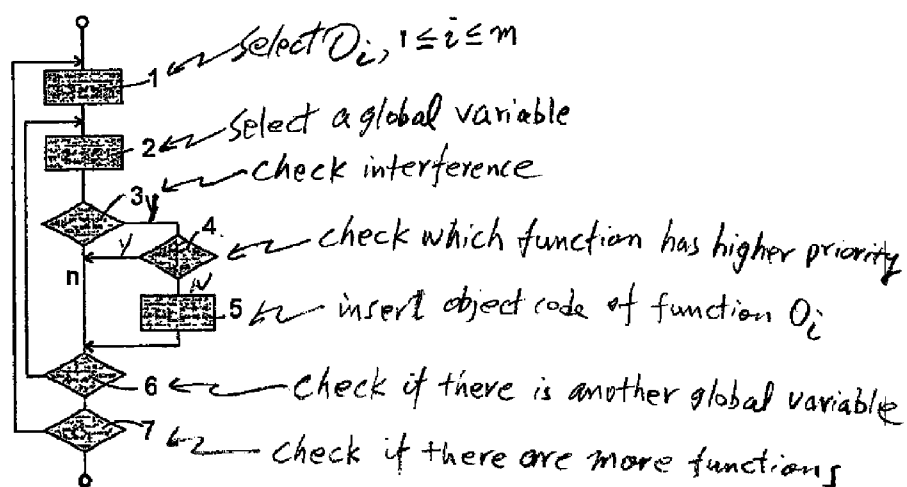 1 select O_i, 1 ≤ i ≤ m
2 select a global variable
3 y check interference
4. check which function has higher priority
y
n
N
5 insert object code of function O_i
6 check if there is another global variable
7 check if there are more functions